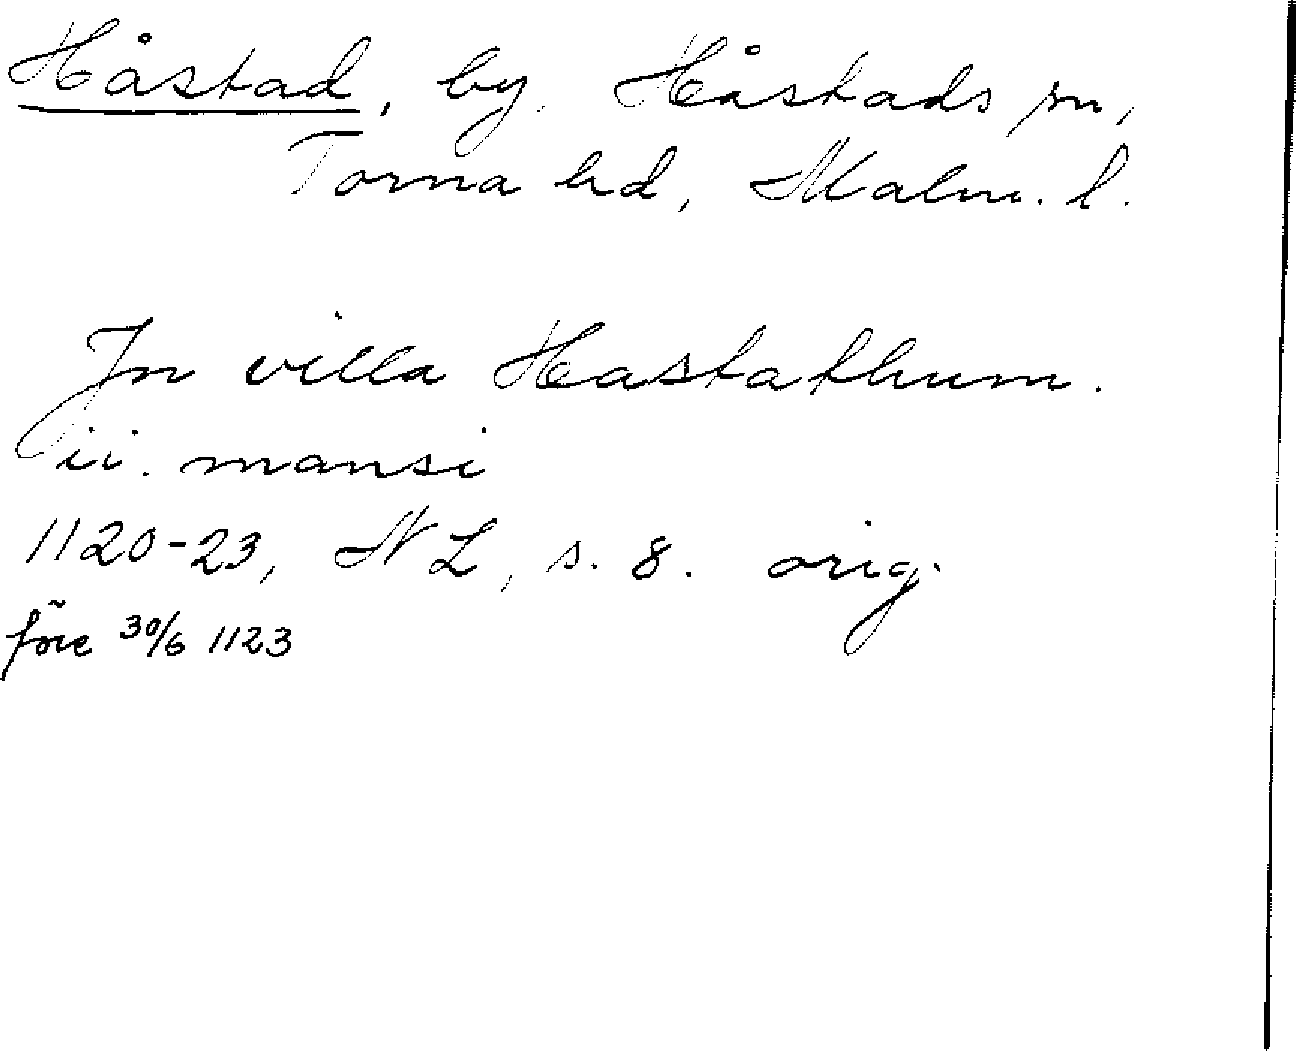 Håstad, by. Håstads sn,
Torna hd, Malm. l.
Jn villa Hastathum.
ii. mansi
1120-23, NL, s. 8. orig.
före 30/6 1123